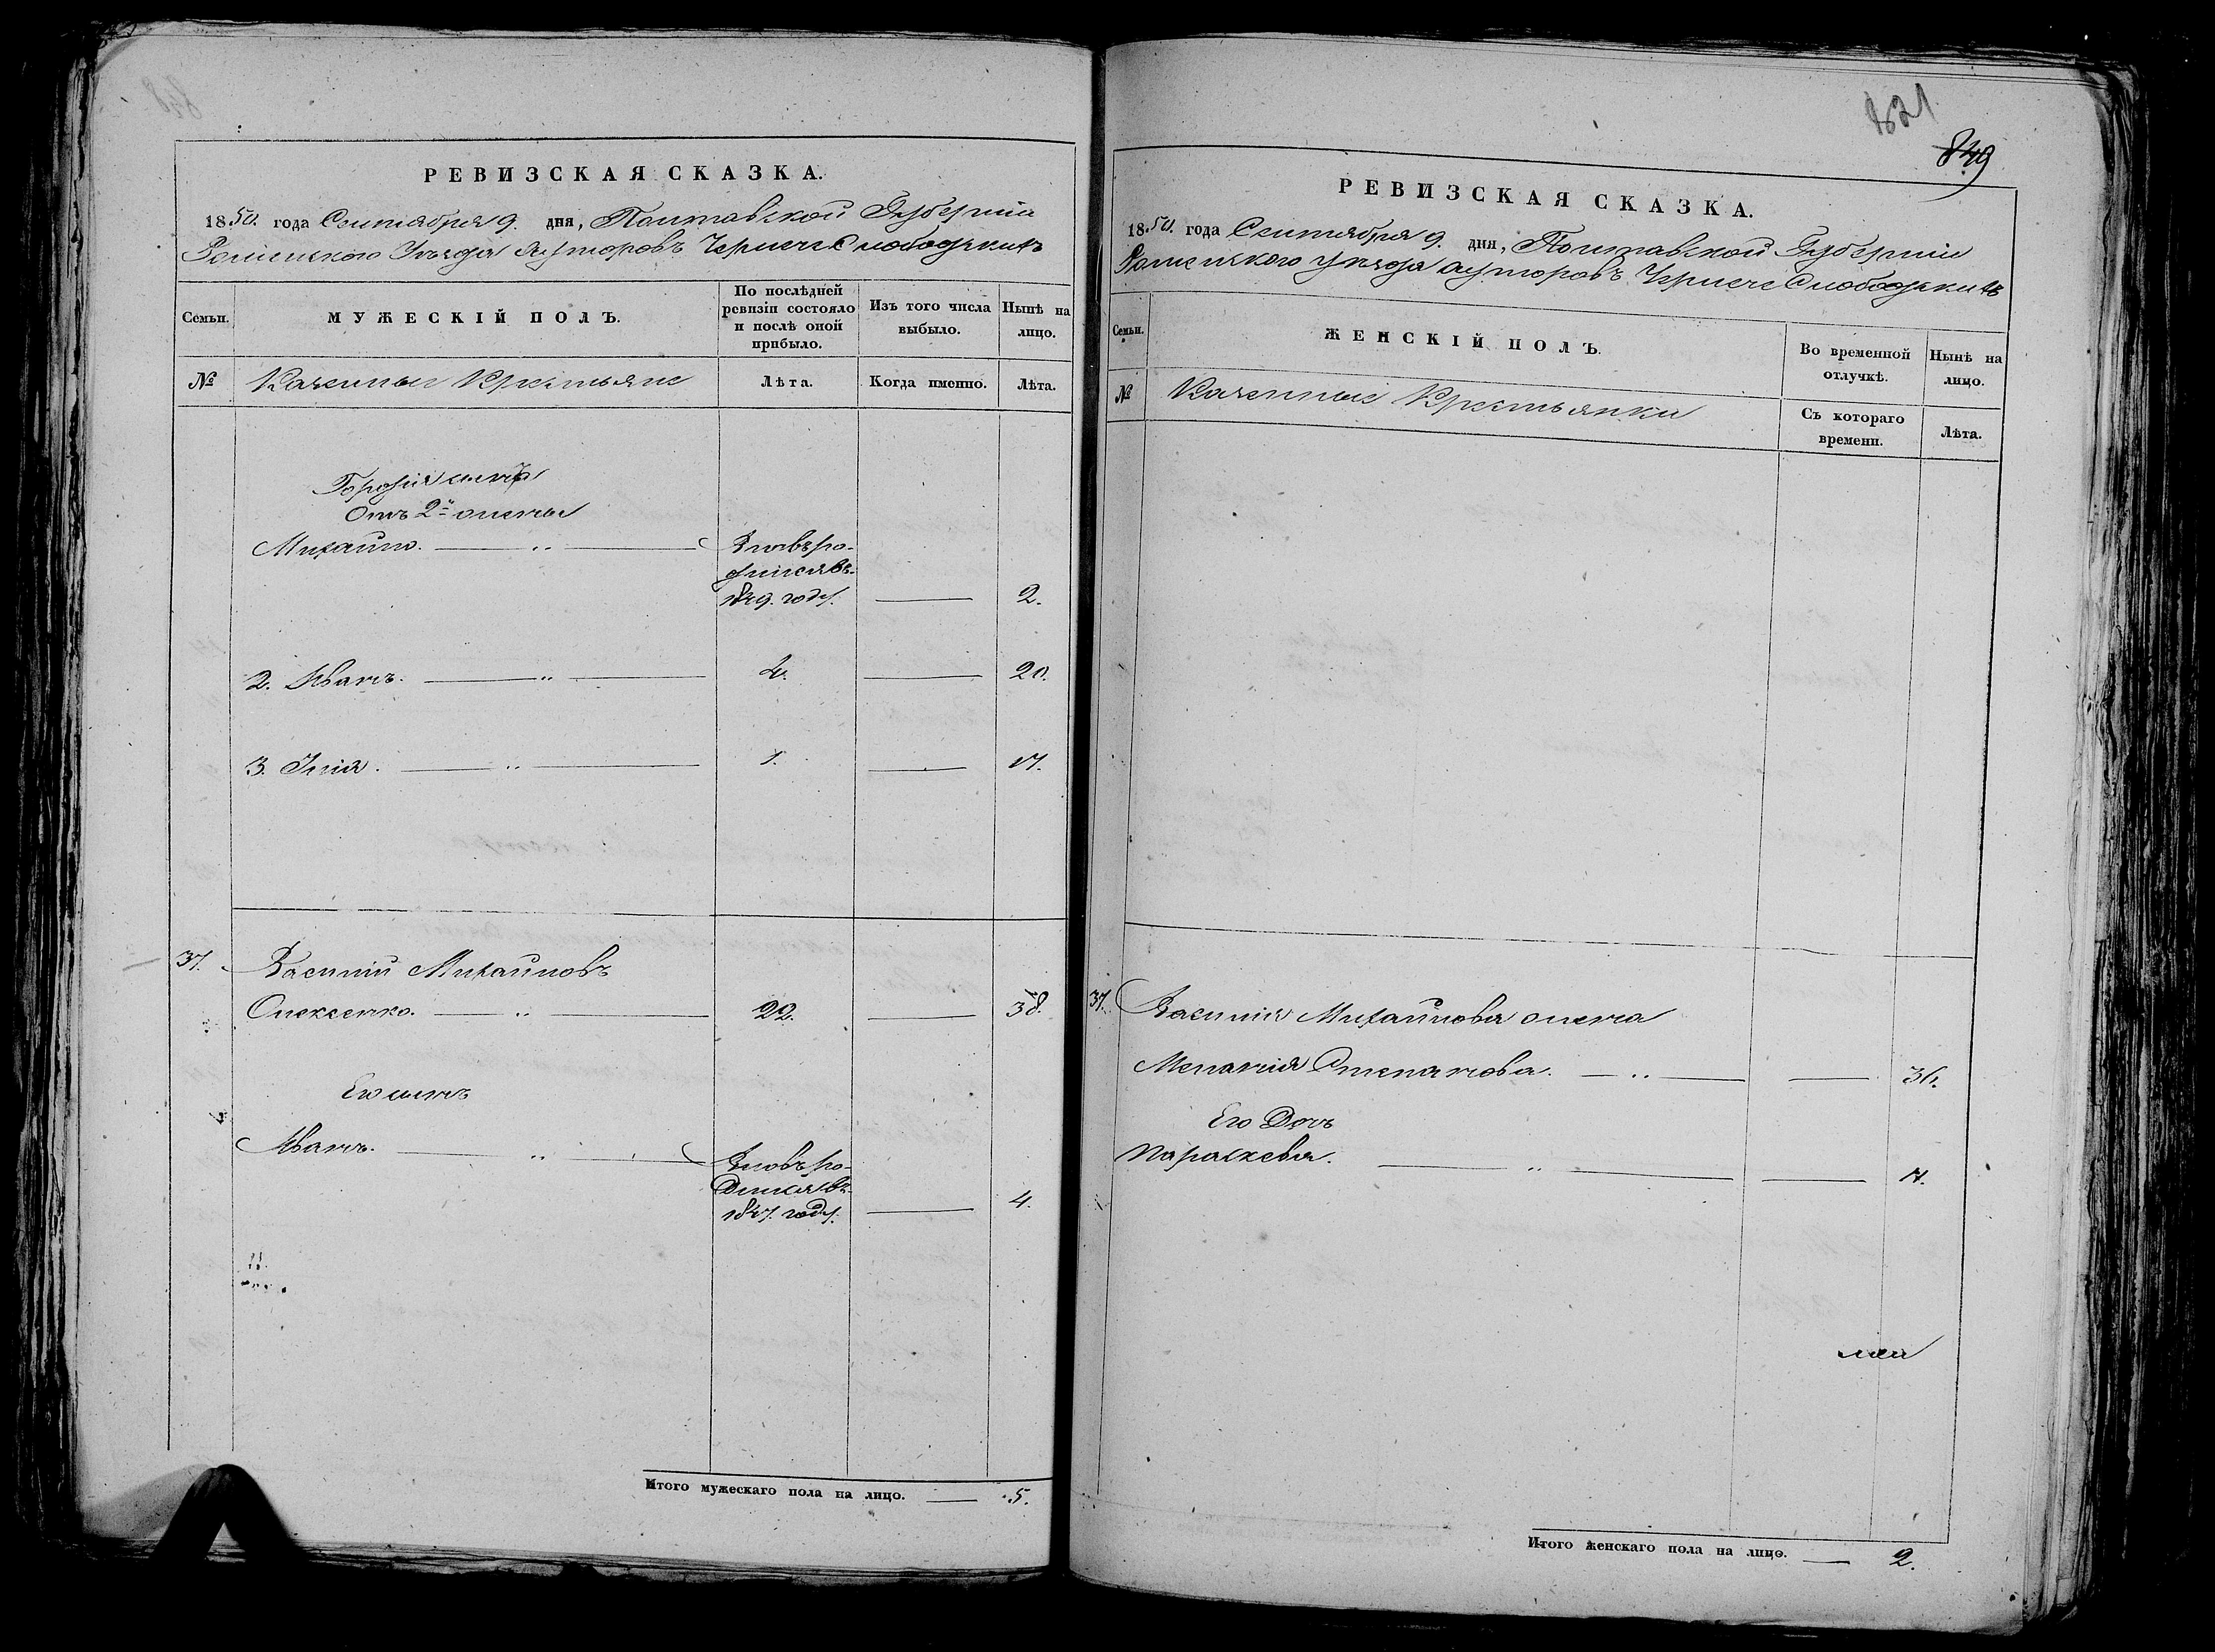 РЕВИЗСКАЯ СКАЗКА.
1850. года Сентября 9. дня, Полтавской Губерніи
Роменского Уезда Хуторовъ Чернече Слободскихъ
Семьи.
МУЖЕСКІЙ ПОЛЪ.
По послѣдней ревизіи состояло и послѣ оной прибыло.
Изъ того числа выбыло.
Нынѣ на лицо.
№
Казенные Крестьяне
Лѣта.
Когда именно.
Лѣта.
сынъ
Отъ 2й жены
Михайло.
Вновь ро-
дился въ
1849. году.
2.
2. Иванъ.
4.
20.
3. Илія.
1.
17.
37.
Василий Михайловъ
Олексенко.
22.
38.
Его сынъ
Иванъ.
Вновь ро-
дился въ
1847. году.
4.
Итого мужескаго пола на лицо. 5.
821
849
РЕВИЗСКАЯ СКАЗКА.
1850. года Сентября 9. дня, Полтавской Губерніи
Роменского Уезда Хуторовъ Чернече Слободскихъ
Семьи.
ЖЕНСКІЙ ПОЛЪ.
Во временной отлучкѣ.
Нынѣ на лицо.
№
Казенные Крестьянки
Съ котораго времени.
Лѣта.
37.
Василия Михайлова жена
Мелания Степанова.
36.
Его Дочь
Параскевия.
7.
Итого женскаго пола на лицо. 2.